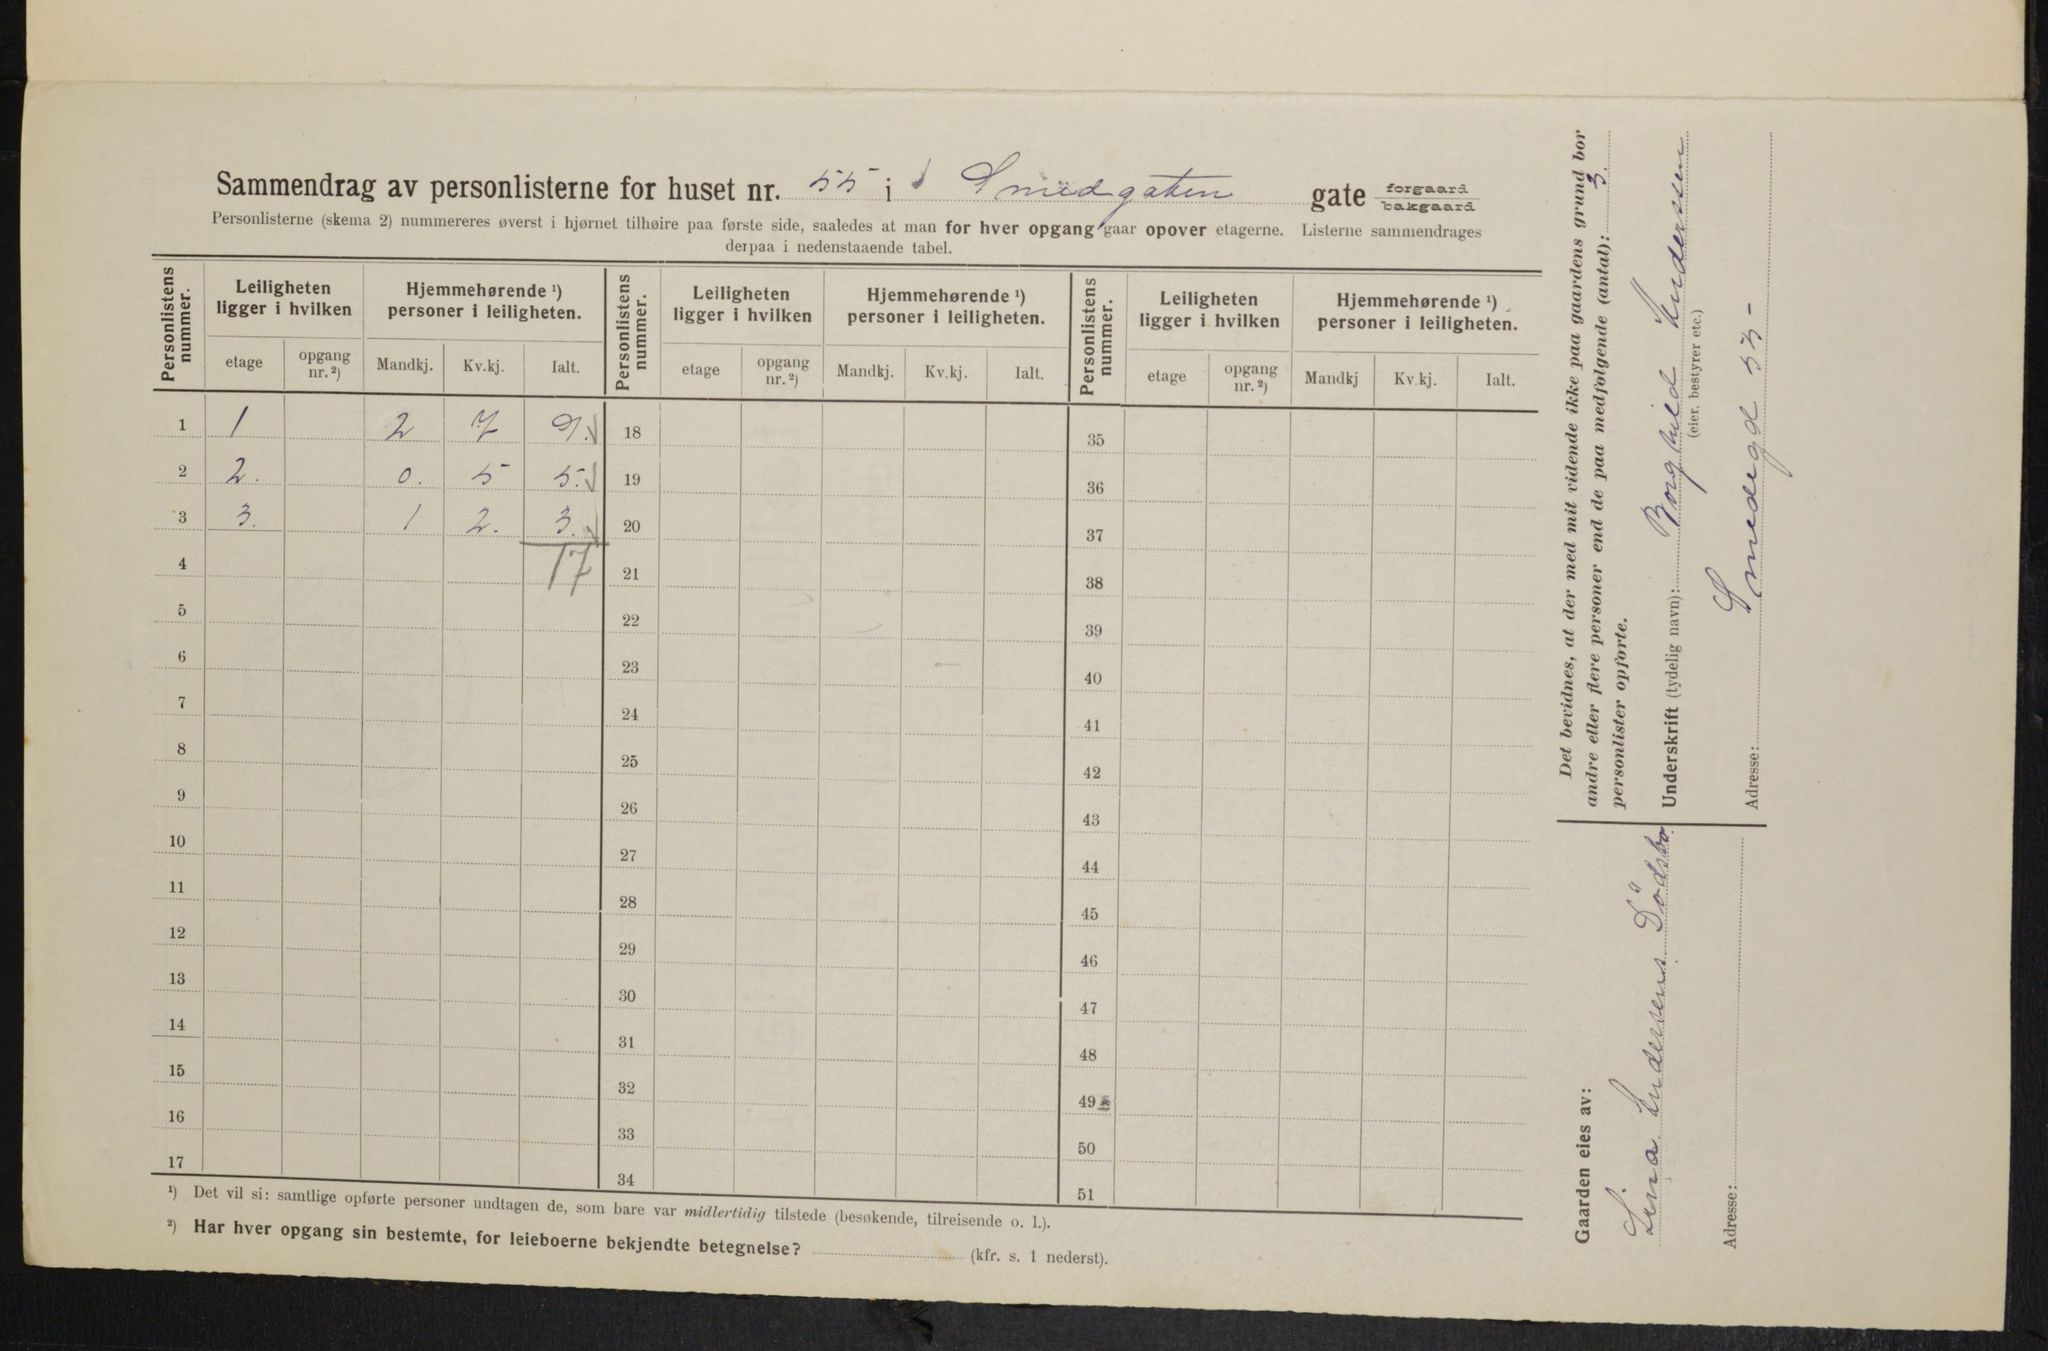 Sammendrag av personlisterne for huset nr. 55 i Smedgaten gate forgaard bakgaard
Personlisterne (skema 2) nummereres øverst i hjørnet tilhøire paa første side, saaledes at man for hver opgang gaar opover etagerne. Listerne sammendrages
derpaa i nedenstaaende tabel.
Personlistens nummer. Leiligheten ligger i hvilken Hjemmehørende ¹) personer i leiligheten. Personlistens nummer. Leiligheten ligger i hvilken Hjemmehørende ¹) personer i leiligheten. Personlistens nummer. Leiligheten ligger i hvilken Hjemmehørende ¹) personer i leiligheten.
etage opgang nr. ²) Mandkj. Kv.kj. Ialt. etage opgang nr. ²) Mandkj. Kv.kj. Ialt. etage opgang nr. ²) Mandkj Kv.kj. Ialt.
1 1 2 7 9. 18 35
2 2. 0. 5 5. 19 36
3 3. 1 2. 3. 20 37
4 17 21 38
5 22 39
6 23 40
7 24 41
8 25 42
9 26 43
10 27 44
11 28 45
12 29 46
13 30 47
14 31 48
15 32 49
16 33 50
17 34 51
¹) Det vil si: samtlige opførte personer undtagen de, som bare var midlertidig tilstede (besøkende, tilreisende o. l.).
²) Har hver opgang sin bestemte, for leieboerne bekjendte betegnelse? (kfr. s. 1 nederst).
Det bevidnes, at der med mit vidende ikke paa gaardens grund bor
andre eller flere personer end de paa medfølgende (antal): 3.
personlister opførte.
Underskrift (tydelig navn): Borghild Andersen
(eier, bestyrer etc.)
Adresse: Smedegd 55-
Gaarden eies av:
Lina Andersens Dödsbo
Adresse: